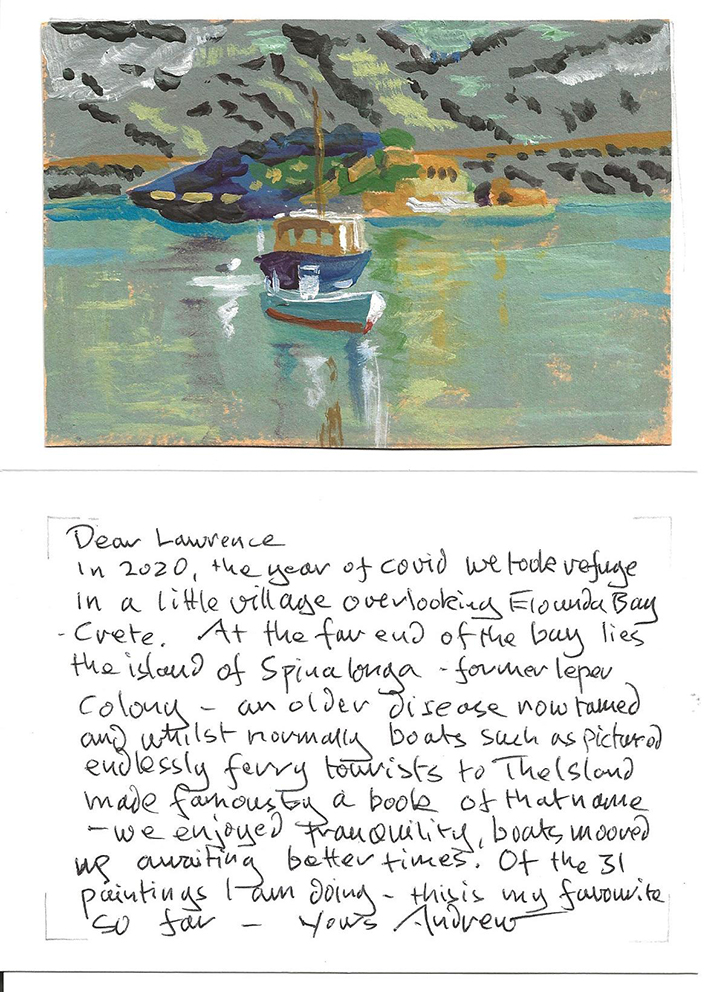 Dear Lawrence
In 2020, the year of covid we took refuge
in a little village overlooking Elounda Bay
- Crete. At the far end of the bay lies
the island of Spinalonga - former leper
Colony - an older disease now tamed
and whilst normally boats such as pictured
endlessly ferry tourists to The Island
made famous by a book of that name
- we enjoyed tranquility, boats moored
up awaiting better times. Of the 31
paintings I am doing - this is my favourite
so far - Yours Andrew